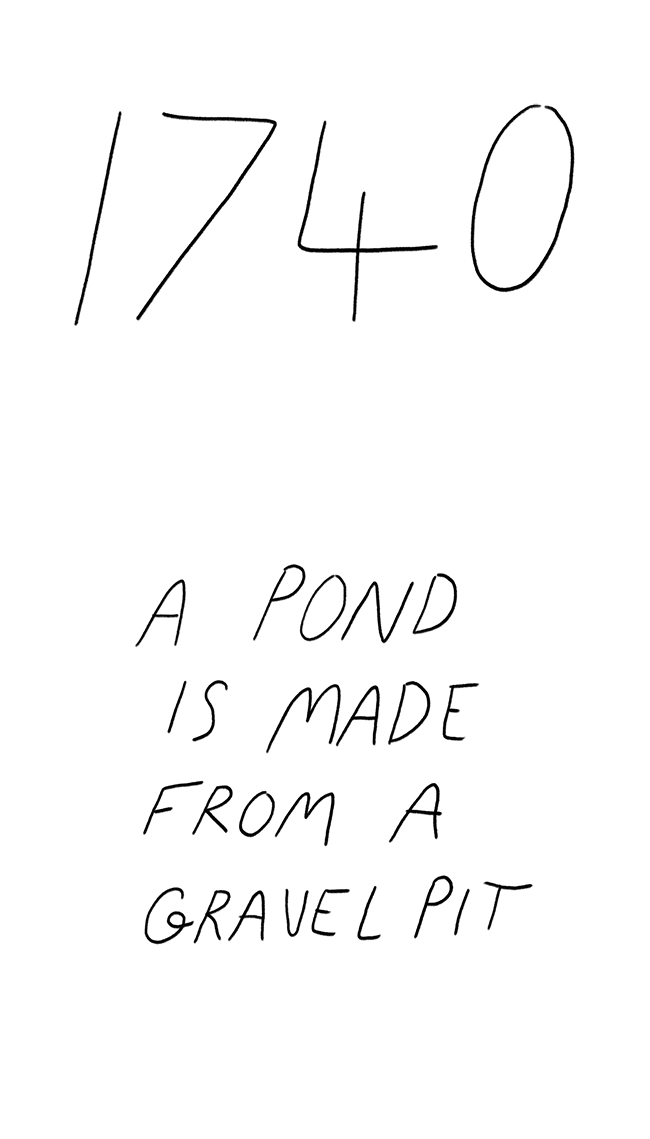 1740
A POND
IS MADE
FROM A
GRAVEL PIT